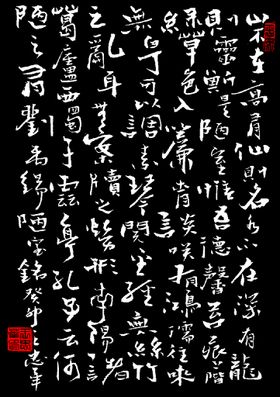 山不在高有仙則名水不在深有龍
則靈斯是陋室惟吾德馨苔痕階
綠草色入簾青談笑有鴻儒往来
無白丁可以調素琴閱金經無絲竹
之亂耳無案牘之勞形南陽諸
葛廬西蜀子雲亭孔子云何
陋之有劉禹錫陋室銘癸卯志華